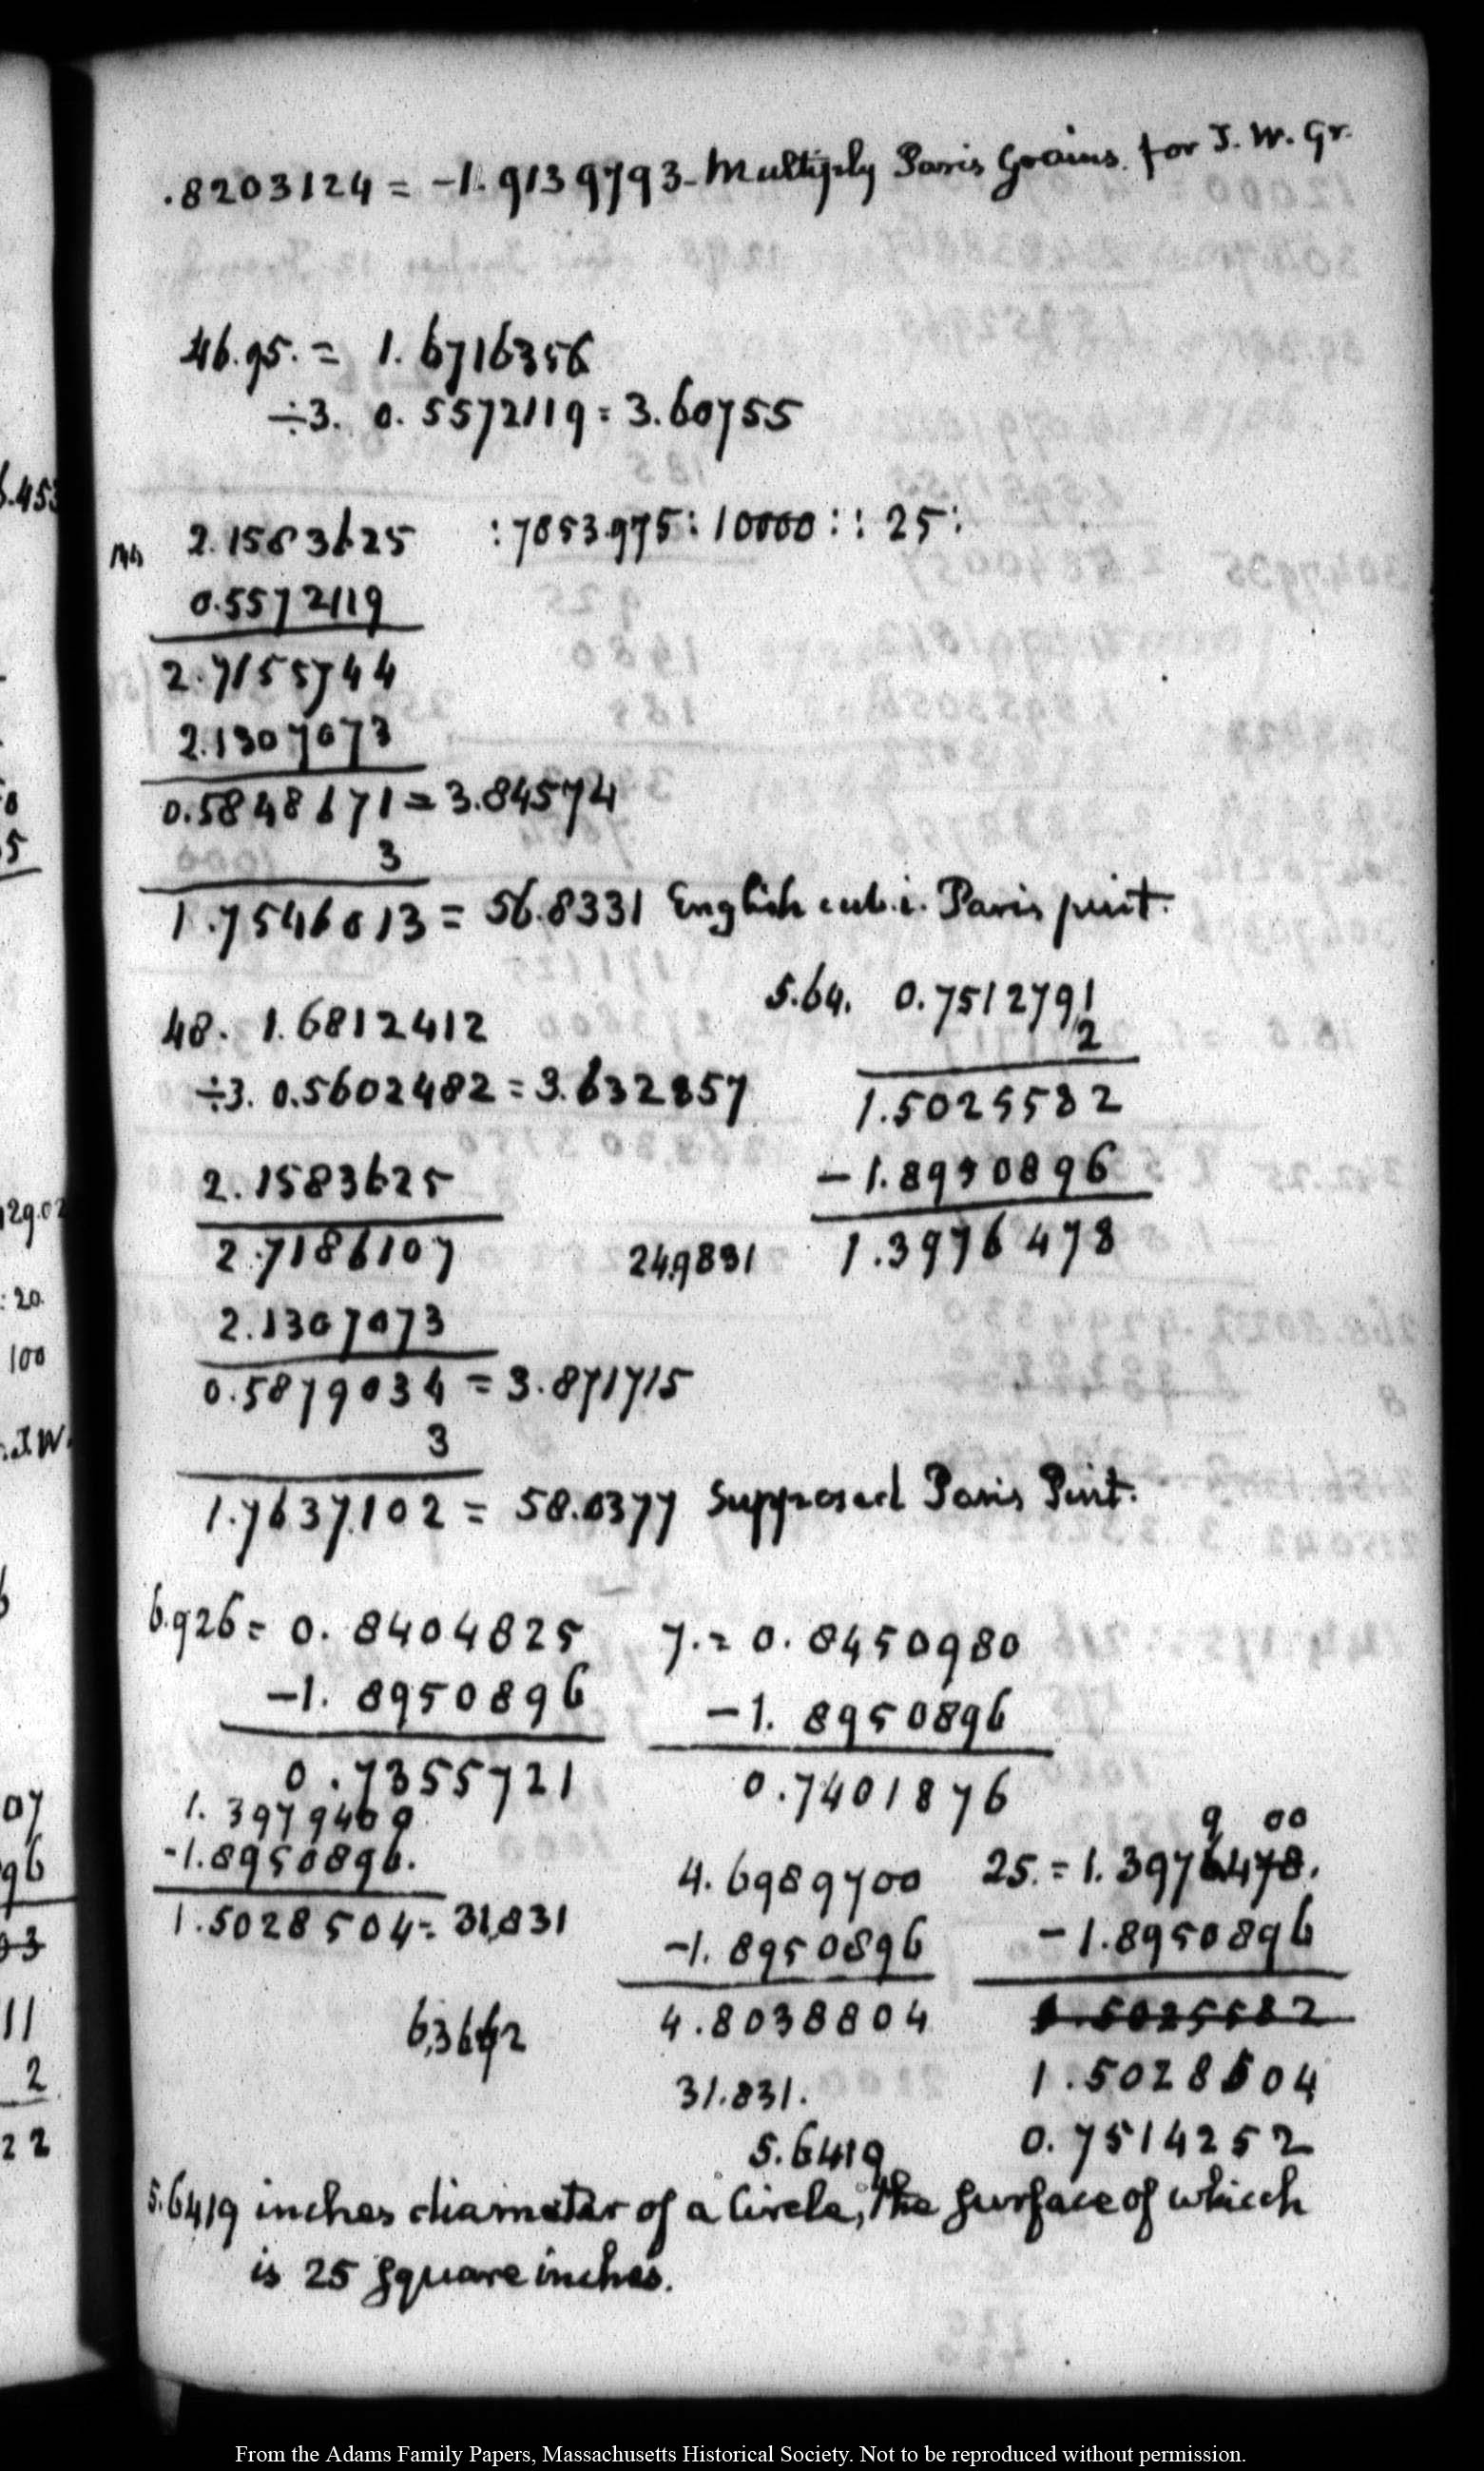 .8203124 = -1.9139793 - Multiply Paris Grains for T. W. Gr.
46.95. = 1.6716356
÷3. 0.5572119 = 3.60755
2.1583625 : 7853.975 : 10000 : : 25 :
0.5572119
2.7155744
2.1307073
0.5848671 = 3.84574
3
1.7546013 = 56.8331 English cub. i. Paris pint.
48. 1.6812412
÷3. 0.5602482 = 3.632857
2.1583625
2.7186107
2.1307073
0.5879034 = 3.871715
3
1.7637102 = 58.0377 Supposed Paris Pint.
5.64. 0.7512791
2
1.5025582
-1.8950896
249831 1.3976478
6.926 = 0.8404825
-1.8950896
0.7355721
7. = 0.8450980
-1.8950896
0.7401876
1.3979400
-1.8950896.
1.5028504 = 31,831
6,3662
4.6989700
-1.8950896
4.8038804
31.831.
5.6419
9 00
25. = 1.3976478.
-1.8950896
1.5025582
1.5028504
0.7514252
5.6419 inches diameter of a Circle, the surface of which
is 25 square inches.
6.453
5
129.02
: 20.
100
07
96
03
11
2
22
From the Adams Family Papers, Massachusetts Historical Society. Not to be reproduced without permission.